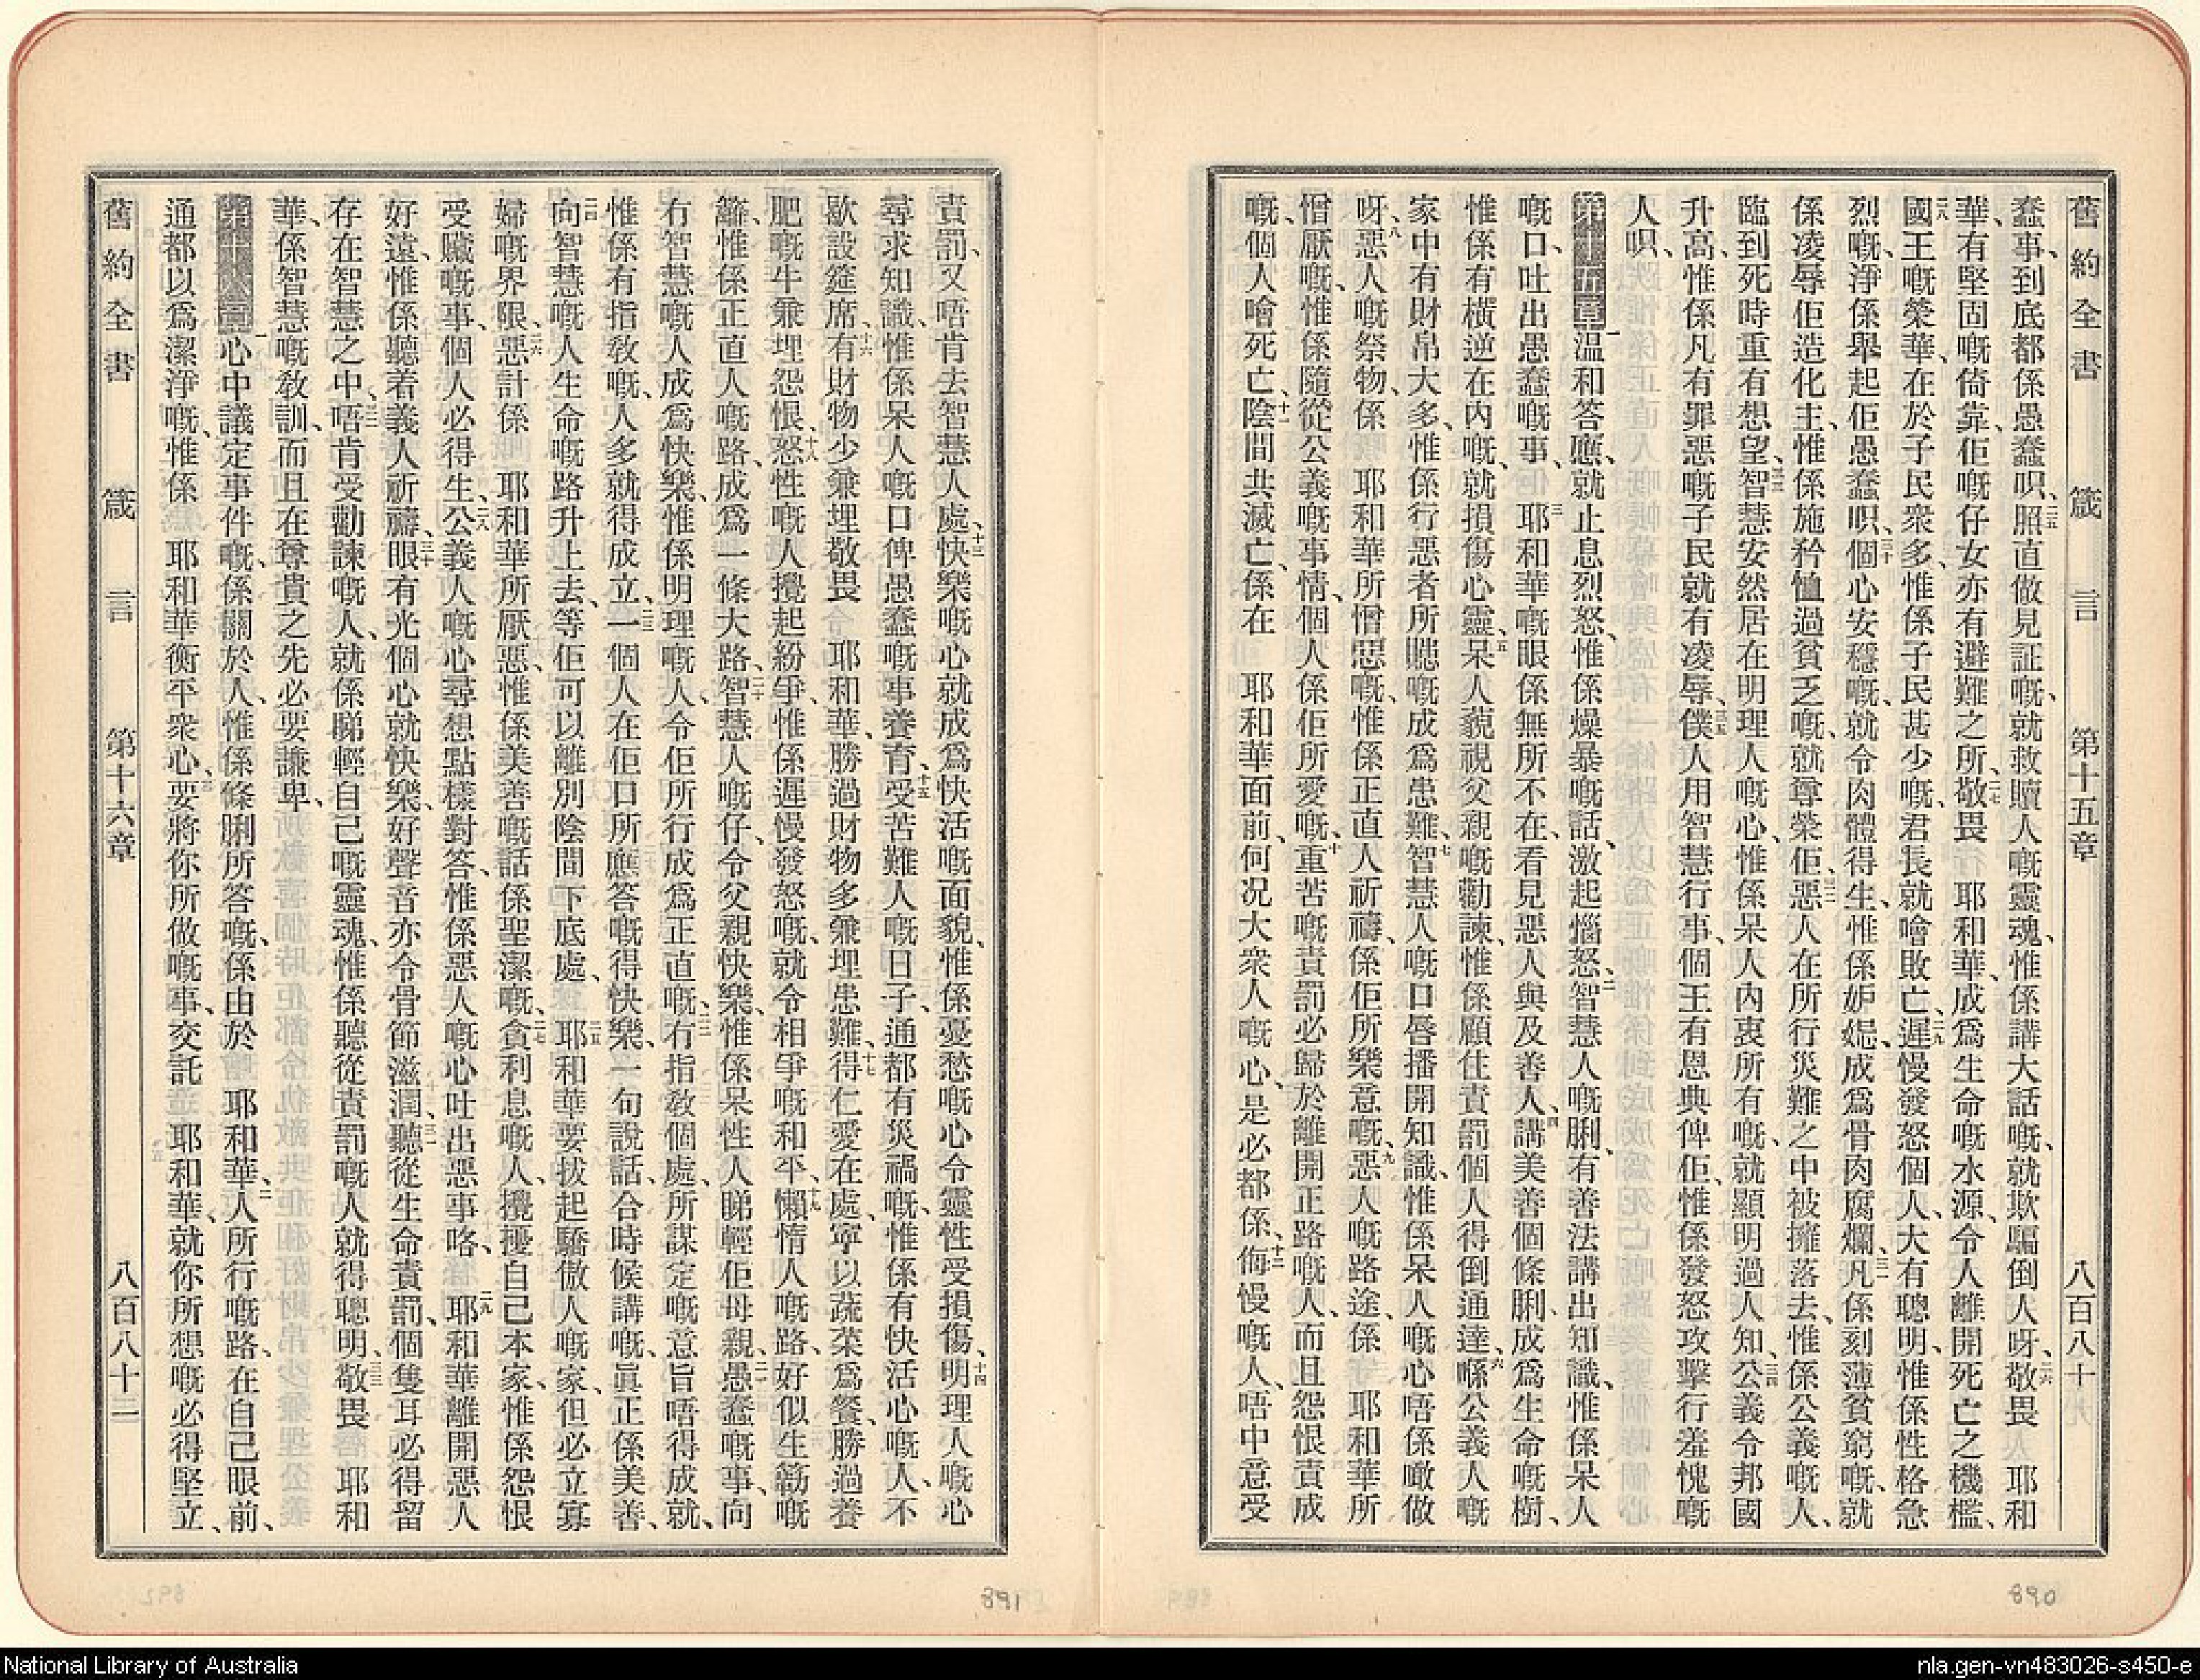 舊約全書　箴言　第十五章　八百八十
蠢事、到底都係愚蠢呮、二五照直做見証嘅、就救贖人嘅靈魂、惟係講大話嘅、就欺騙倒人呀、二六敬畏　耶和
華、有堅固嘅倚靠、佢嘅仔女亦有避難之所、二七敬畏　耶和華、成爲生命嘅水源、令人離開死亡之機檻、
二八國王嘅榮華、在於子民衆多、惟係子民甚少嘅、君長就噲敗亡、二九遲慢發怒個人、大有聰明、惟係性格急
烈嘅、淨係舉起佢愚蠢呮、三十個心安穩嘅、就令肉體得生、惟係妒𡞋成爲骨肉腐爛、三一凡係刻薄貧窮嘅、就
係凌辱佢造化主、惟係施矜恤過貧乏嘅、就尊榮佢、三二惡人在所行災難之中被擁落去、惟係公義嘅人、
臨到死時重有想望、三三智慧安然居在明理人嘅心、惟係呆人內衷所有嘅、就顯明過人知、三四公義令邦國
升高、惟係凡有罪惡嘅子民就有凌辱、三五僕人用智慧行事、個王有恩典俾佢、惟係發怒攻擊行羞愧嘅
人呮、
第十五章一温和答應、就止息烈怒、惟係燥暴嘅話、激起惱怒、二智慧人嘅脷、有善法講出知識、惟係呆人
嘅口、吐出愚蠢嘅事、三　耶和華嘅眼係無所不在、看見惡人與及善人、四講美善個條脷、成爲生命嘅樹、
惟係有橫逆在內嘅、就損傷心靈、五呆人藐視父親嘅勸諫、惟係顧住責罰個人得倒通達、六喺公義人嘅
家中有財帛大多、惟係行惡者所聽嘅成爲患難、七智慧人嘅口唇播開知識、惟係呆人嘅心唔係噉做
呀、八惡人嘅祭物、係　耶和華所憎惡嘅、惟係正直人祈禱、係佢所樂意嘅、九惡人嘅路途、係　耶和華所
憎厭嘅、惟係隨從公義嘅事情、個人係佢所愛嘅、十重苦嘅責罰必歸於離開正路嘅人、而且怨恨責成
嘅、個人噲死亡、十一陰間共滅亡、係在　耶和華面前、何况大衆人嘅心、是必都係、十二侮慢嘅人、唔中意受
責罰、又唔肯去智慧人處、十三快樂嘅心就成爲快活嘅面貌、惟係憂愁嘅心令靈性受損傷、十四明理人嘅心
尋求知識、惟係呆人嘅口俾愚蠢嘅事養育、十五受苦難人嘅日子、通都有災禍嘅、惟係有快活心嘅人、不
歇設筵席、十六有財物少兼埋敬畏　耶和華、勝過財物多兼埋患難、十七得仁愛在處、寧以蔬菜爲餐、勝過養
肥嘅牛兼埋怨恨、十八怒性嘅人攪起紛爭、惟係遲慢發怒嘅、就令相爭嘅和平、十九懶惰人嘅路、好似生簕嘅
籬、惟係正直人嘅路、成爲一條大路、二十智慧人嘅仔、令父親快樂、惟係呆性人睇輕佢母親、二一愚蠢嘅事、向
冇智慧嘅人成爲快樂、惟係明理嘅人、令佢所行成爲正直嘅、二二冇指敎個處、所謀定嘅意旨唔得成就、
惟係有指敎嘅、人多就得成立、二三一個人在佢口所應答嘅得快樂、一句說話、合時候講嘅、眞正係美善、
二四向智慧嘅人生命嘅路升上去、等佢可以離別陰間下底處、二五　耶和華要拔起驕傲人嘅家、但必立寡
婦嘅界限、二六惡計係　耶和華所厭惡、惟係美善嘅話係聖潔嘅、二七貪利息嘅人、攪擾自己本家、惟係怨恨
受贜嘅事、個人必得生、二八公義人嘅心尋想點樣對答、惟係惡人嘅心吐出惡事咯、二九　耶和華離開惡人
好遠、惟係聽着義人祈禱、三十眼有光個心就快樂、好聲音亦令骨節滋潤、三一聽從生命責罰、個隻耳必得留
存在智慧之中、三二唔肯受勸諫嘅人、就係睇輕自己嘅靈魂、惟係聽從責罰嘅人就得聰明、三三敬畏　耶和
華、係智慧嘅敎訓、而且在尊貴之先必要謙卑、
第十六章一心中議定事件嘅、係關於人、惟係條脷所答嘅、係由於　耶和華、二人所行嘅路、在自己眼前、
通都以爲潔淨嘅、惟係　耶和華衡平衆心、三要將你所做嘅事、交託　耶和華、就你所想嘅必得堅立、
舊約全書　箴言　第十六章　八百八十一
890
891
National Library of Australia
nla.gen-vn483026-s450-e